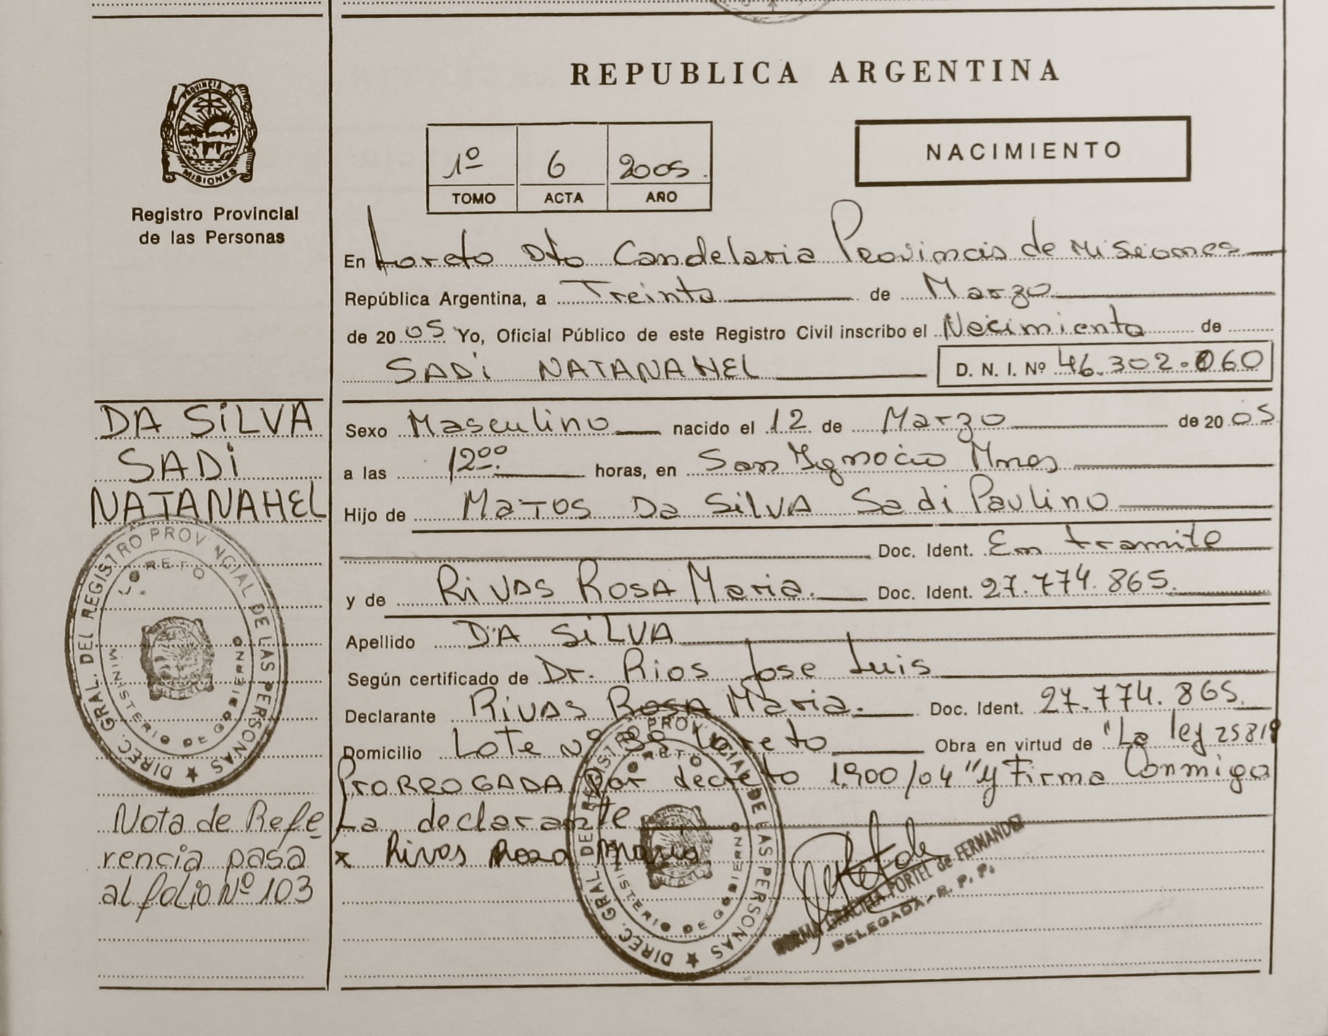 REPUBLICA ARGENTINA
PROVINCIA DE
MISIONES
Registro Provincial
de las Personas
1º 6 2005.
TOMO ACTA AÑO
NACIMIENTO
En Loreto Dto Candelaria Provincia de Misiones
República Argentina, a Treinta de Marzo
de 20 05 Yo, Oficial Público de este Registro Civil inscribo el Nacimiento de
SADI NATANAHEL D. N. I. Nº 46.302.060
DA SILVA
SADI
NATANAHEL
Sexo Masculino nacido el 12 de Marzo de 20 05
a las 12ºº horas, en San Ignacio Mnes
Hijo de MATOS DA SILVA Sadi Paulino
Doc. Ident. En tramite
y de RIVAS ROSA Maria. Doc. Ident. 27.774.865.
Apellido DA SILVA
Según certificado de Dr. Rios Jose Luis
Declarante RIVAS ROSA Maria. Doc. Ident. 27.774.865.
Domicilio LOTE Nº Loreto Obra en virtud de "La ley 25819
PRORROGADA por decreto 1.900/04" y Firma Conmigo
La declarante
x Rivas Rosa Maria
Nota de Refe
rencia pasa
al folio Nº 103
DIREC. GRAL. DEL REGISTRO PROVINCIAL DE LAS PERSONAS
LORETO
MINISTERIO DE GOBIERNO
DIREC. GRAL. DEL REGISTRO PROVINCIAL DE LAS PERSONAS
LORETO
MINISTERIO DE GOBIERNO
NORMA GRACIELA PORTEL de FERNANDEZ
DELEGADA - R. P. P.